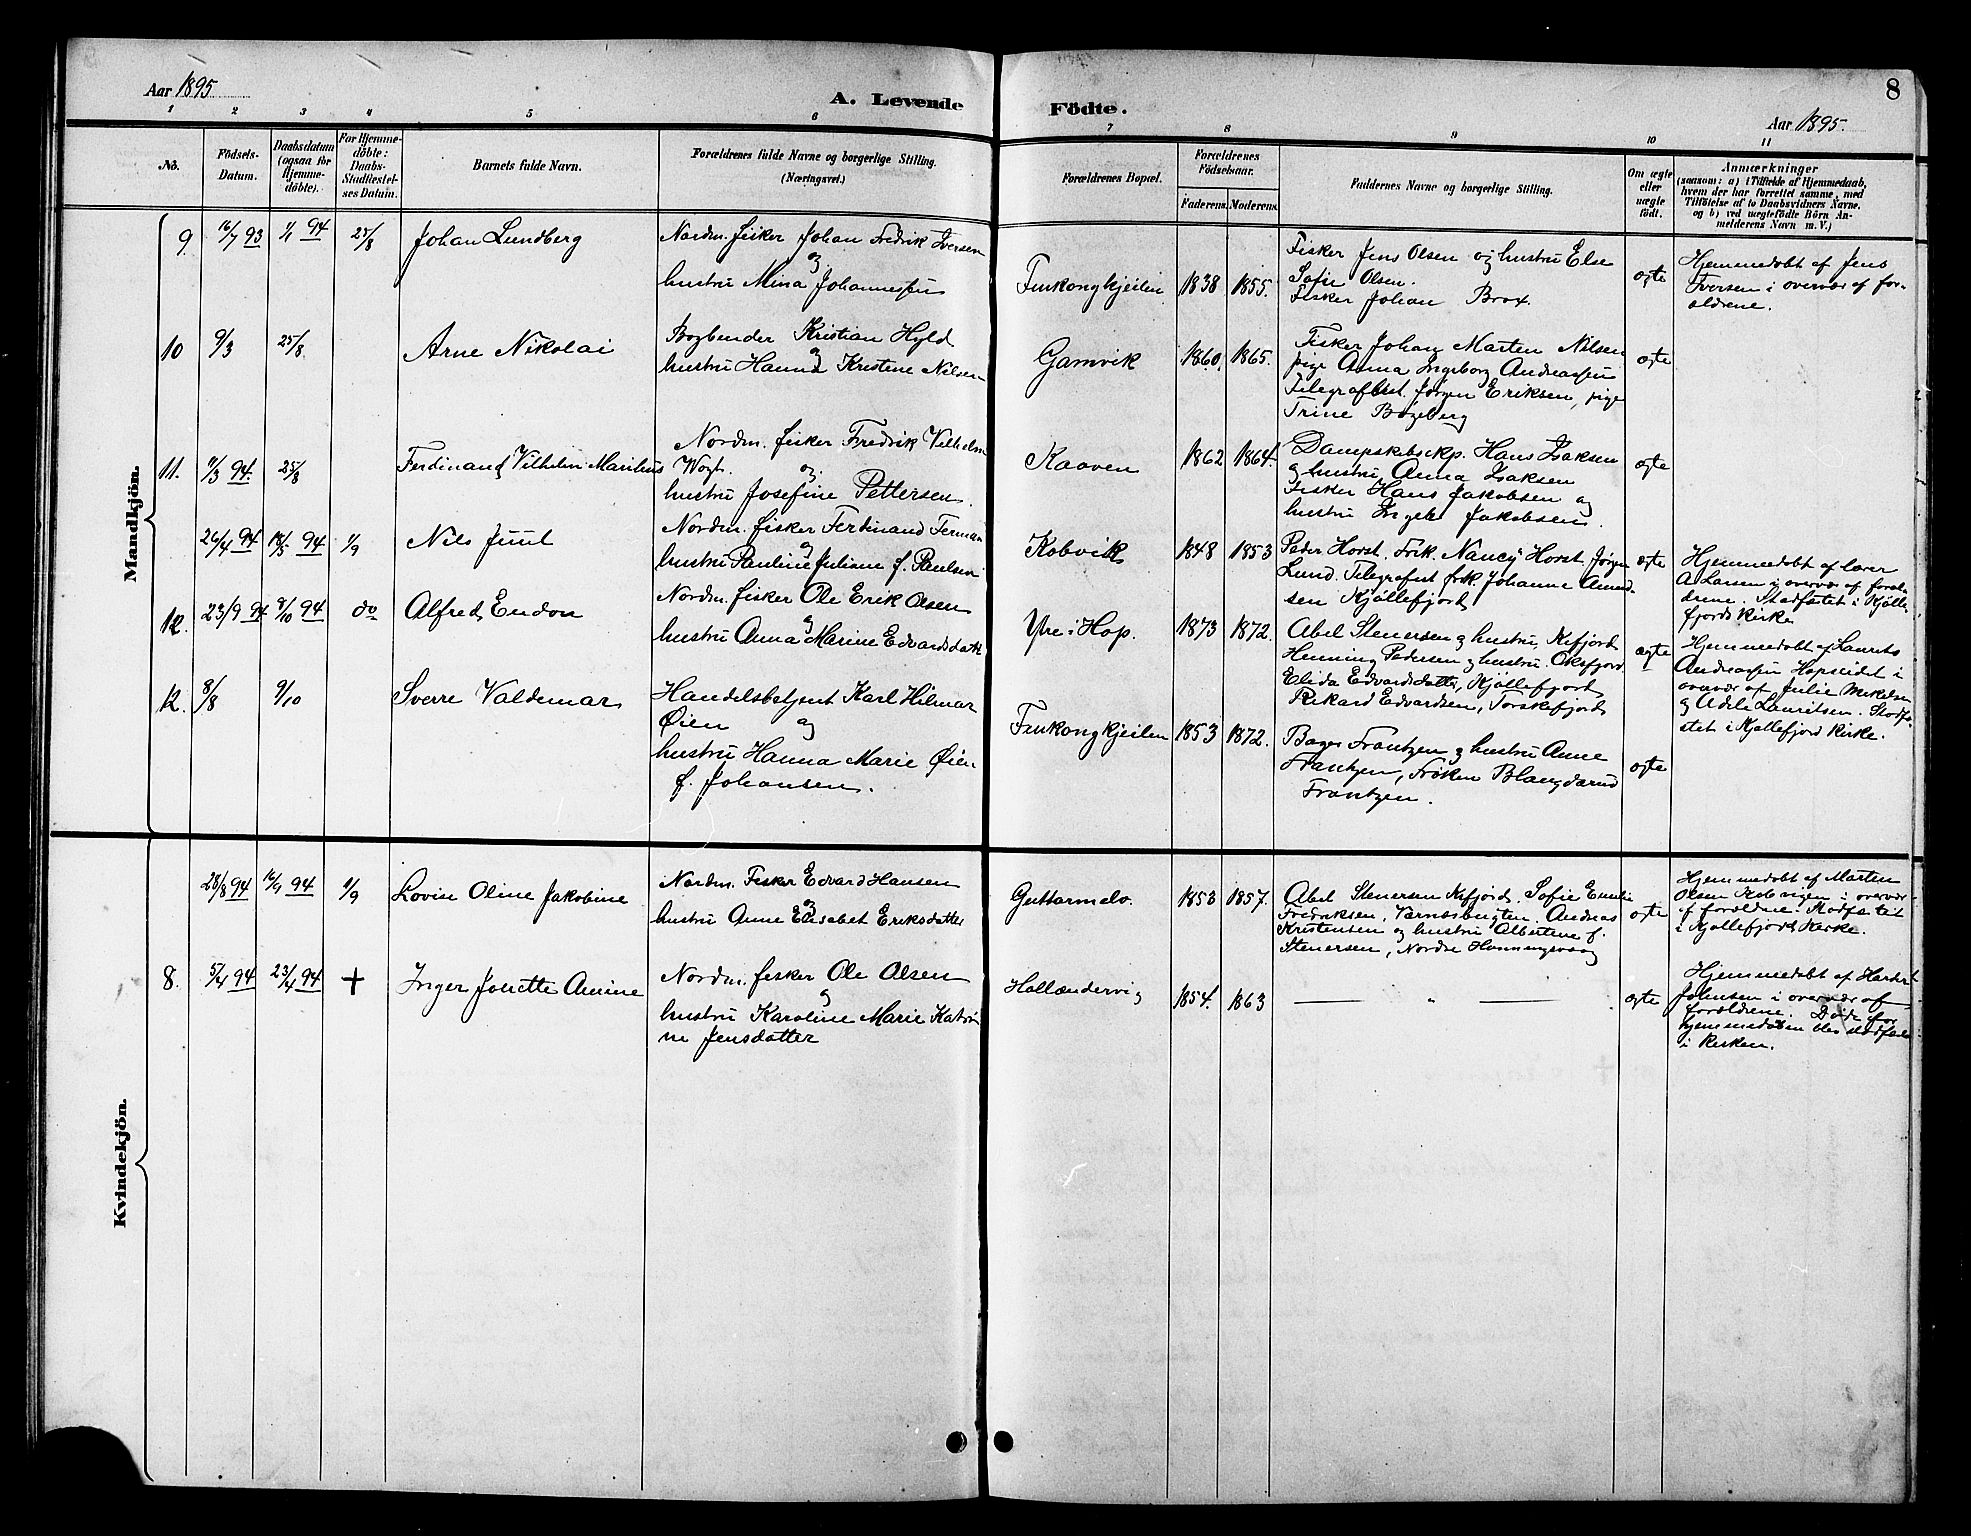 Aar 1895
A. Levende
1 2 3 4 5 6
No.
Födsels-
Datum.
Daabsdatum
(ogsaa for
Hjemme-
döbte).
For Hjemme-
döbte:
Daabs-
Stadfæstel-
ses Datum.
Barnets fulde Navn.
Forældrenes fulde Navne og borgerlige Stilling.
(Næringsvei.)
Mandkjön.
9. 16/7 93 1/1 94 25/8 Johan Lundberg
Nordm. fisker Johan Fredrik Iversen
og
hustru Mina Johannesen
10 9/3 25/8 Arne Nikolai
Bogbinder Kristian Hyld
og
hustru Hanna Kristine Nilsen
11. 9/3 94. 25/8 Ferdinand Vilhelm Marilius
Nordm. fisker Fredrik Vilhelm
Wogt. og
hustru Josefine Pettersen.
26/4 94 18/5 94 1/9 Nils Juul
Nordm. fisker Ferdinand
og
hustru Pauline Juliane f. Paulsen
12. 23/9 94 9/10 94 do Alfred Endon
Nordm. fisker Ole Erik Olsen
og
hustru Anna Marine Edvardsdatt
12. 8/8 9/10 Sverre Valdemar
Handelsbetjent Karl Hilmar
Øien og
hustru Hanna Marie Øien
f. Johansen.
Kvindekjön.
28/8 94 16/9 94 1/9 Lovise Oline Jakobine
Nordm. Fisker Edvard Hansen
og
hustru Anne Elisabet Eriksdatter
8. 5/4 94 23/4 94 + Inger Jonette Amine
Nordm. fisker Ole Olsen
og
hustru Karoline Marie Katri
ne Jensdatter
8
Födte.
Aar 1895.
7 8 9 10 11
Forældrenes Bopæl.
Forældrenes
Födselsaar.
Faderens. Moderens.
Faddernes Navne og borgerlige Stilling.
Om ægte
eller
uægte
födt.
Anmærkninger
(saasom: a) i Tilfælde af Hjemmedaab,
hvem der har forrettet samme, med
Tilföielse af to Daabsvidners Navne.
og b) ved uægtefödte Börn An-
melderens Navn m. V.)
Finkongkjeilen 1838 1855.
Fisker Jens Olsen og hustru Else
Sofie Olsen.
Fisker Johan Brox.
ægte
Hjemmedøbt af Jens
Iversen i overvær af for-
ældrene.
Gamvik 1860. 1865.
Fisker Johan Marten Nilsen
pige Anna Ingeborg Andreassen
Telegrafbest. Jørgen Eriksen, pige
Trine Bogeberg
ægte
Kaaven 1862 1864.
Dampskibsexp. Hans Isaksen
og hustru Anna Isaksen
Fisker Hans Jakobsen og
hustru Jakobsen.
ægte
Kobvik 1848 1853
Peder Horst. Frk. Nancy Horst. Jørgen
Lund. Telegrafist frk. Johanne Amund-
sen Kjøllefjord
ægte
Hjemmedøbt af lærer
A Larsen i overvær af foræl-
drene. Stadfæstet i Kjølle-
fjords kirke
Yre i Hop. 1873 1872.
Abel Stenersen og hustru, Kifjord
Henning Pedersen og hustru. Oksfjord
Elida Edvardsdatter, Kjøllefjord
Rikard Edvardsen, Torskefjord
ægte
Hjemmedøbt af Laurits
Andreassen Hopseidet i
overvær af Julie Mikelsen
og Adele Lauritsen. Stadfæ-
stet i Kjøllefjord kirke.
Finkongkjeilen 1853 1872.
Bager Frantzen og hustru Anne
Frantzen, Frøken
Frantzen.
ægte
Guttormelv. 1853 1857.
Abel Stenersen Kifjord. Sofie Emilie
Fredriksen, Varnæsbugten. Andreas
Kristensen og hustru Albertine f.
Stenersen, Nordre Honningsvaag
ægte
Hjemmedøbt af Marten
Olsen Kobvigen i overvær
af forældrene. Stadfæstet
i Kjøllefjord Kirke.
Hollændervig 1854. 1863 — " — ægte
Hjemmedøbt af
Johnsen i overvær af
forældrene. Døde før
hjemmedaaben blev stadfæst
i kirken.